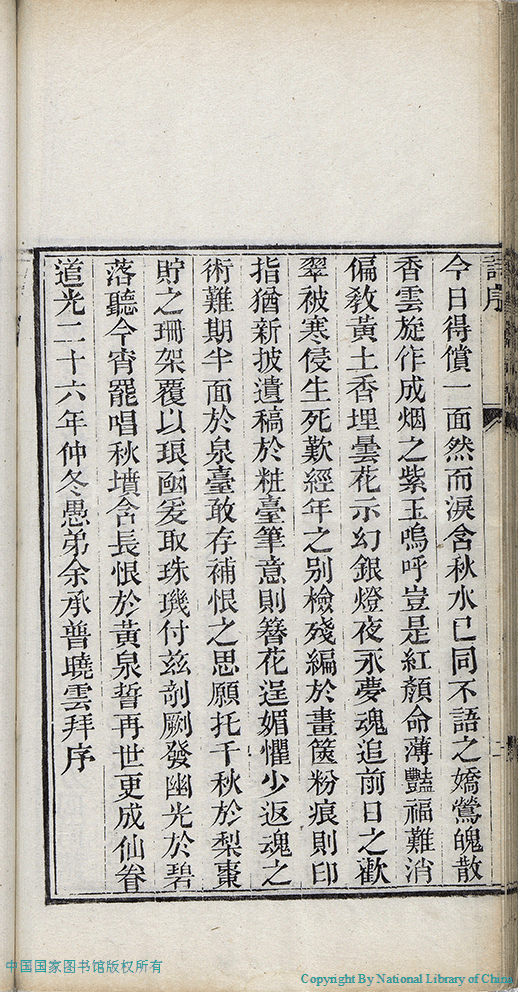 今日得償一面然而淚含秋水已同不語之嬌鶯魄散
香雲旋作成烟之紫玉嗚呼豈是紅顏命薄豔福難消
偏敎黃土香埋曇花示幻銀燈夜永夢魂追前日之歡
翠被寒侵生死歎經年之别檢殘編於畫篋粉痕則印
指猶新披遺稿於粧臺筆意則簪花逞媚懼少返魂之
術難期半面於泉臺敢存補恨之思願托千秋於梨棗
貯之珊架覆以琅函爰取珠璣付兹剞劂發幽光於碧
落聽今宵罷唱秋墳含長恨於黃泉誓再世更成仙眷
道光二十六年仲冬愚弟余承普曉雲拜序
中国国家图书馆版权所有
Copyright By National Library of China